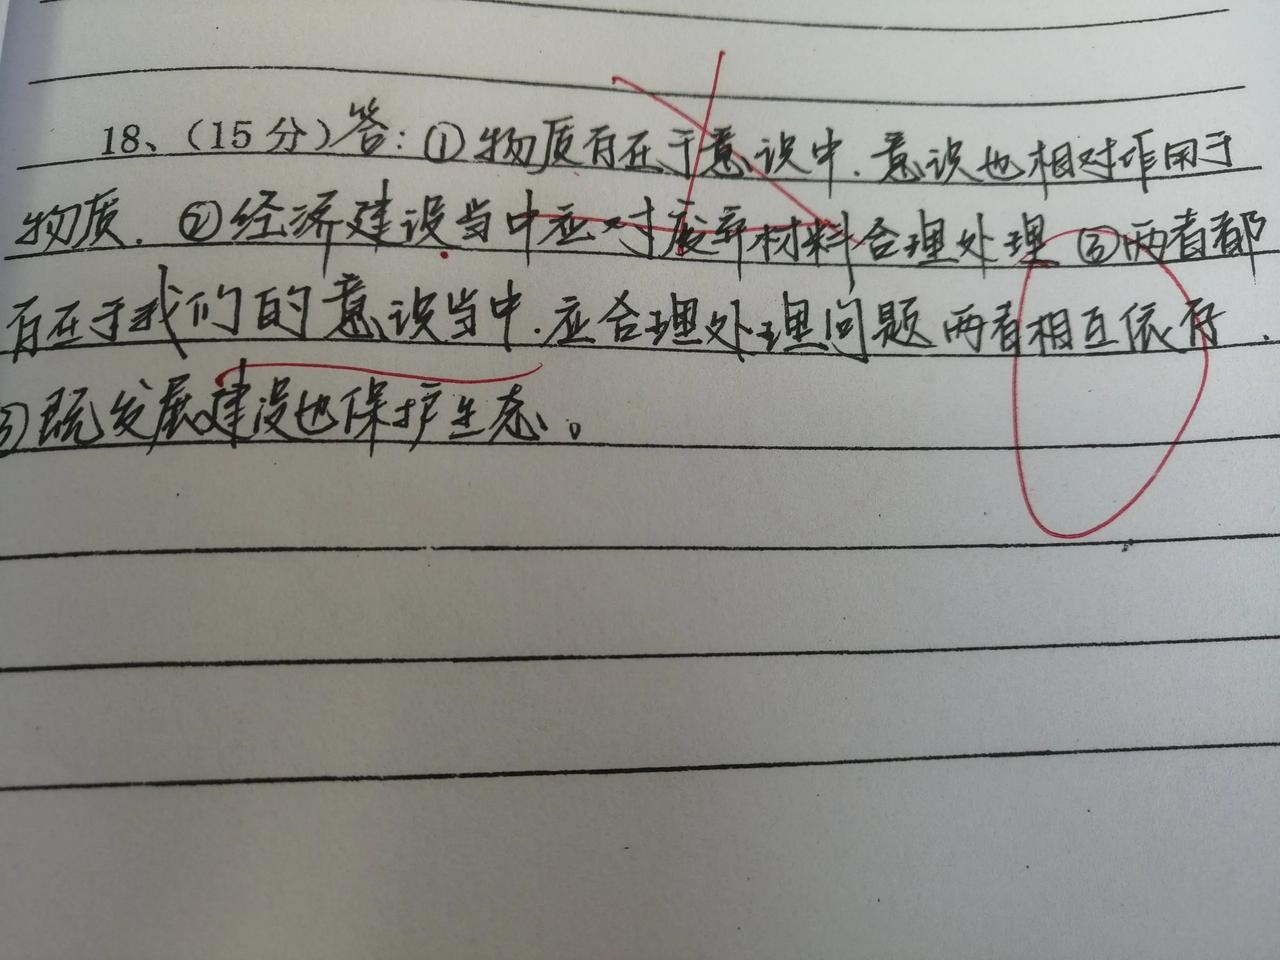 18、（15分）答：①物质存在于意识中．意识也相对作用于
物质．②经济建设当中应对废弃材料合理处理 ③两者都
存在于我们的意识当中．应合理处理问题 两者相互依存．
③既发展建设也保护生态。